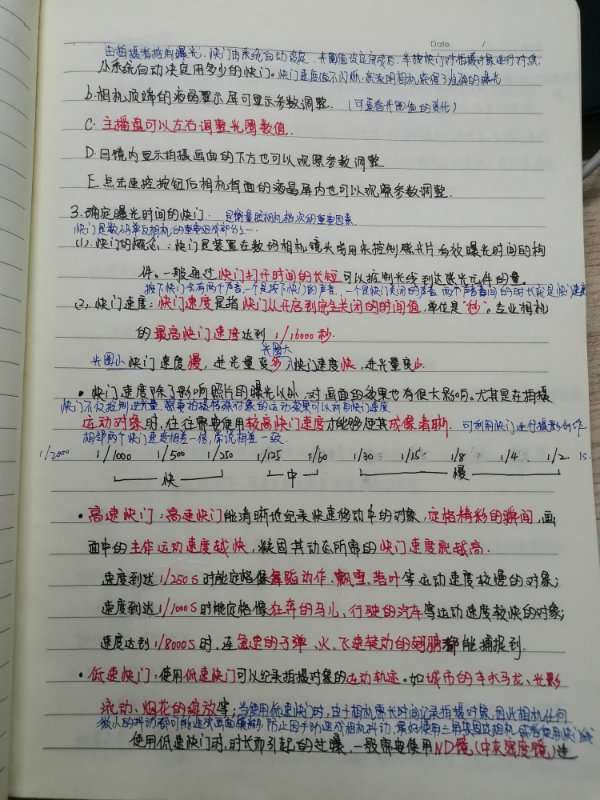 Date / 
由拍摄者控制曝光，快门由系统自动设定，光圈值设定完后，半按快门对拍摄对象进行对焦
从系统自动决定用多少的快门。快门速度值不闪烁，就表明相机获得了准确的曝光
b.相机顶端的液晶显示屏可显示参数调整.（可查看光圈值的变化）
C.主拨盘可以左右调整光圈数值.
D.目镜内显示拍摄画面的下方也可以观察参数调整
E.点击遥控按钮后相机背面的液晶屏内也可以观察参数调整.
3.确定曝光时间的快门.是衡量照相机档次的重要因素
快门是数码单反相机的重要组成部分之一.
(1).快门的概念：快门是装置在数码相机镜头当用来控制感光片有效曝光时间的构
件。一般通过快门打开时间的长短可以控制光线到达感光元件的量。
按下快门会有两个声音,一个是按下快门的声音,一个是快门关闭的声音 两个声音之间的时长就是快门速度
(2).快门速度：快门速度是指快门从开启到完全关闭的时间值,单位是“秒”。专业相机
的最高快门速度达到1/16000秒.
光圈大
光圈小快门速度慢，进光量变多；快门速度快，进光量变少.
• 快门速度除了影响照片的曝光以外,对画面的效果也有很大影响。尤其是在拍摄
快门不仅控制进光量,照常拍摄特殊对象的运动效果可以利用快门速度
运动对象时,往往需要使用较高快门速度才能够使其成像清晰. 可利用快门进行摄影创作
相邻两个快门速度相差一倍,常说相差一级.
1/2000 1/1000 1/500 1/250 1/125 1/60 1/30 1/15 1/8 1/4 1/2 1s
快 中 慢
• 高速快门：高速快门能清晰地纪录快速移动中的对象,定格精彩的瞬间,画
面中的主体运动速度越快,凝固其动态所需的快门速度就越高.
速度到达1/250S时能定格像舞蹈动作、飘雪、落叶等运动速度较慢的对象；
速度到达1/1000S时能定格像狂奔的马儿、行驶的汽车等运动速度较快的对象；
速度达到1/8000S时,连急速的子弹、火、飞速转动的翅膀都能捕捉到.
• 低速快门：使用低速快门可以纪录拍摄对象的运动轨迹。如城市的车水马龙、光影
流动、烟花的绽放等；当使用低速快门时,由于相机需长时间记录拍摄对象,因此相机任何
微小的抖动都可能造成画面模糊 防止因手抖造成相机抖动,最好使用三脚架固定相机,或者使用快门线
使用低速快门时,时长而引起的过曝,一般需要使用ND镜(中灰密度镜)进